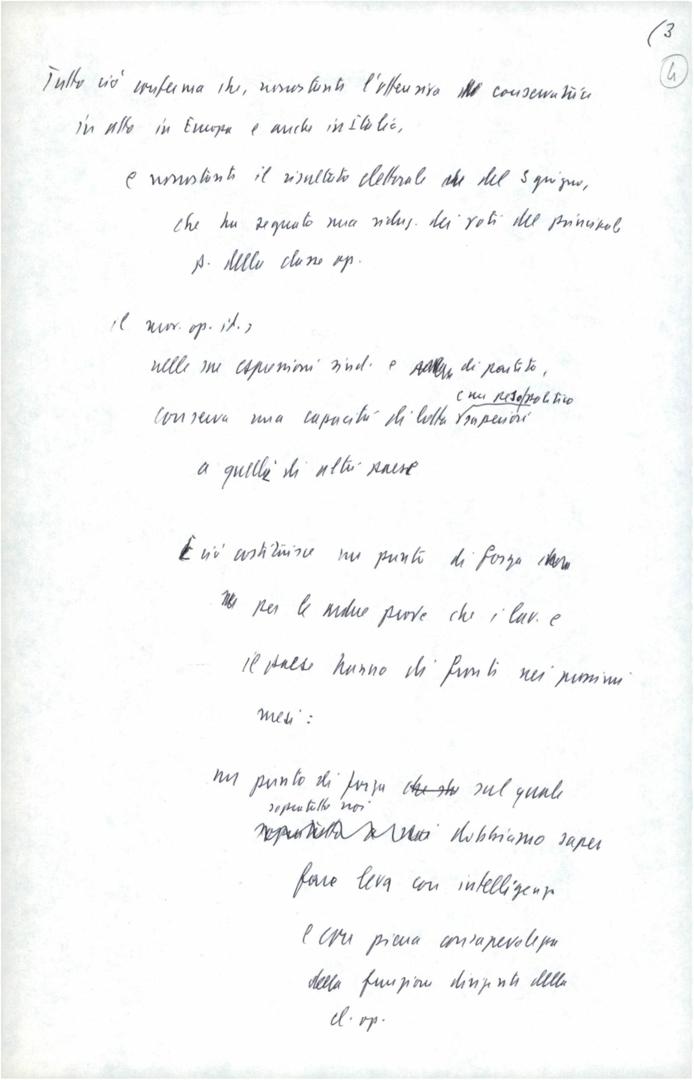 (3
4
Tutto ciò conferma che, nonostante l'offensiva conservatrice
in atto in Europa e anche in Italia,
e nonostante il risultato elettorale del 3 giugno,
che ha segnato una riduz. dei voti del principale
p. della classe op.
il mov. op. it.,
nelle sue espressioni sind. e di partito,
e un peso politico
conserva una capacità di lotta superiori
a quelli di altri paesi
E ciò costituisce un punto di forza
per le ardue prove che i lav. e
il paese hanno di fronte nei prossimi
mesi:
un punto di forza che sul quale
soprattutto noi
soprattutto noi dobbiamo saper
fare leva con intelligenza
e con piena consapevolezza
della funzione dirigente della
cl. op.